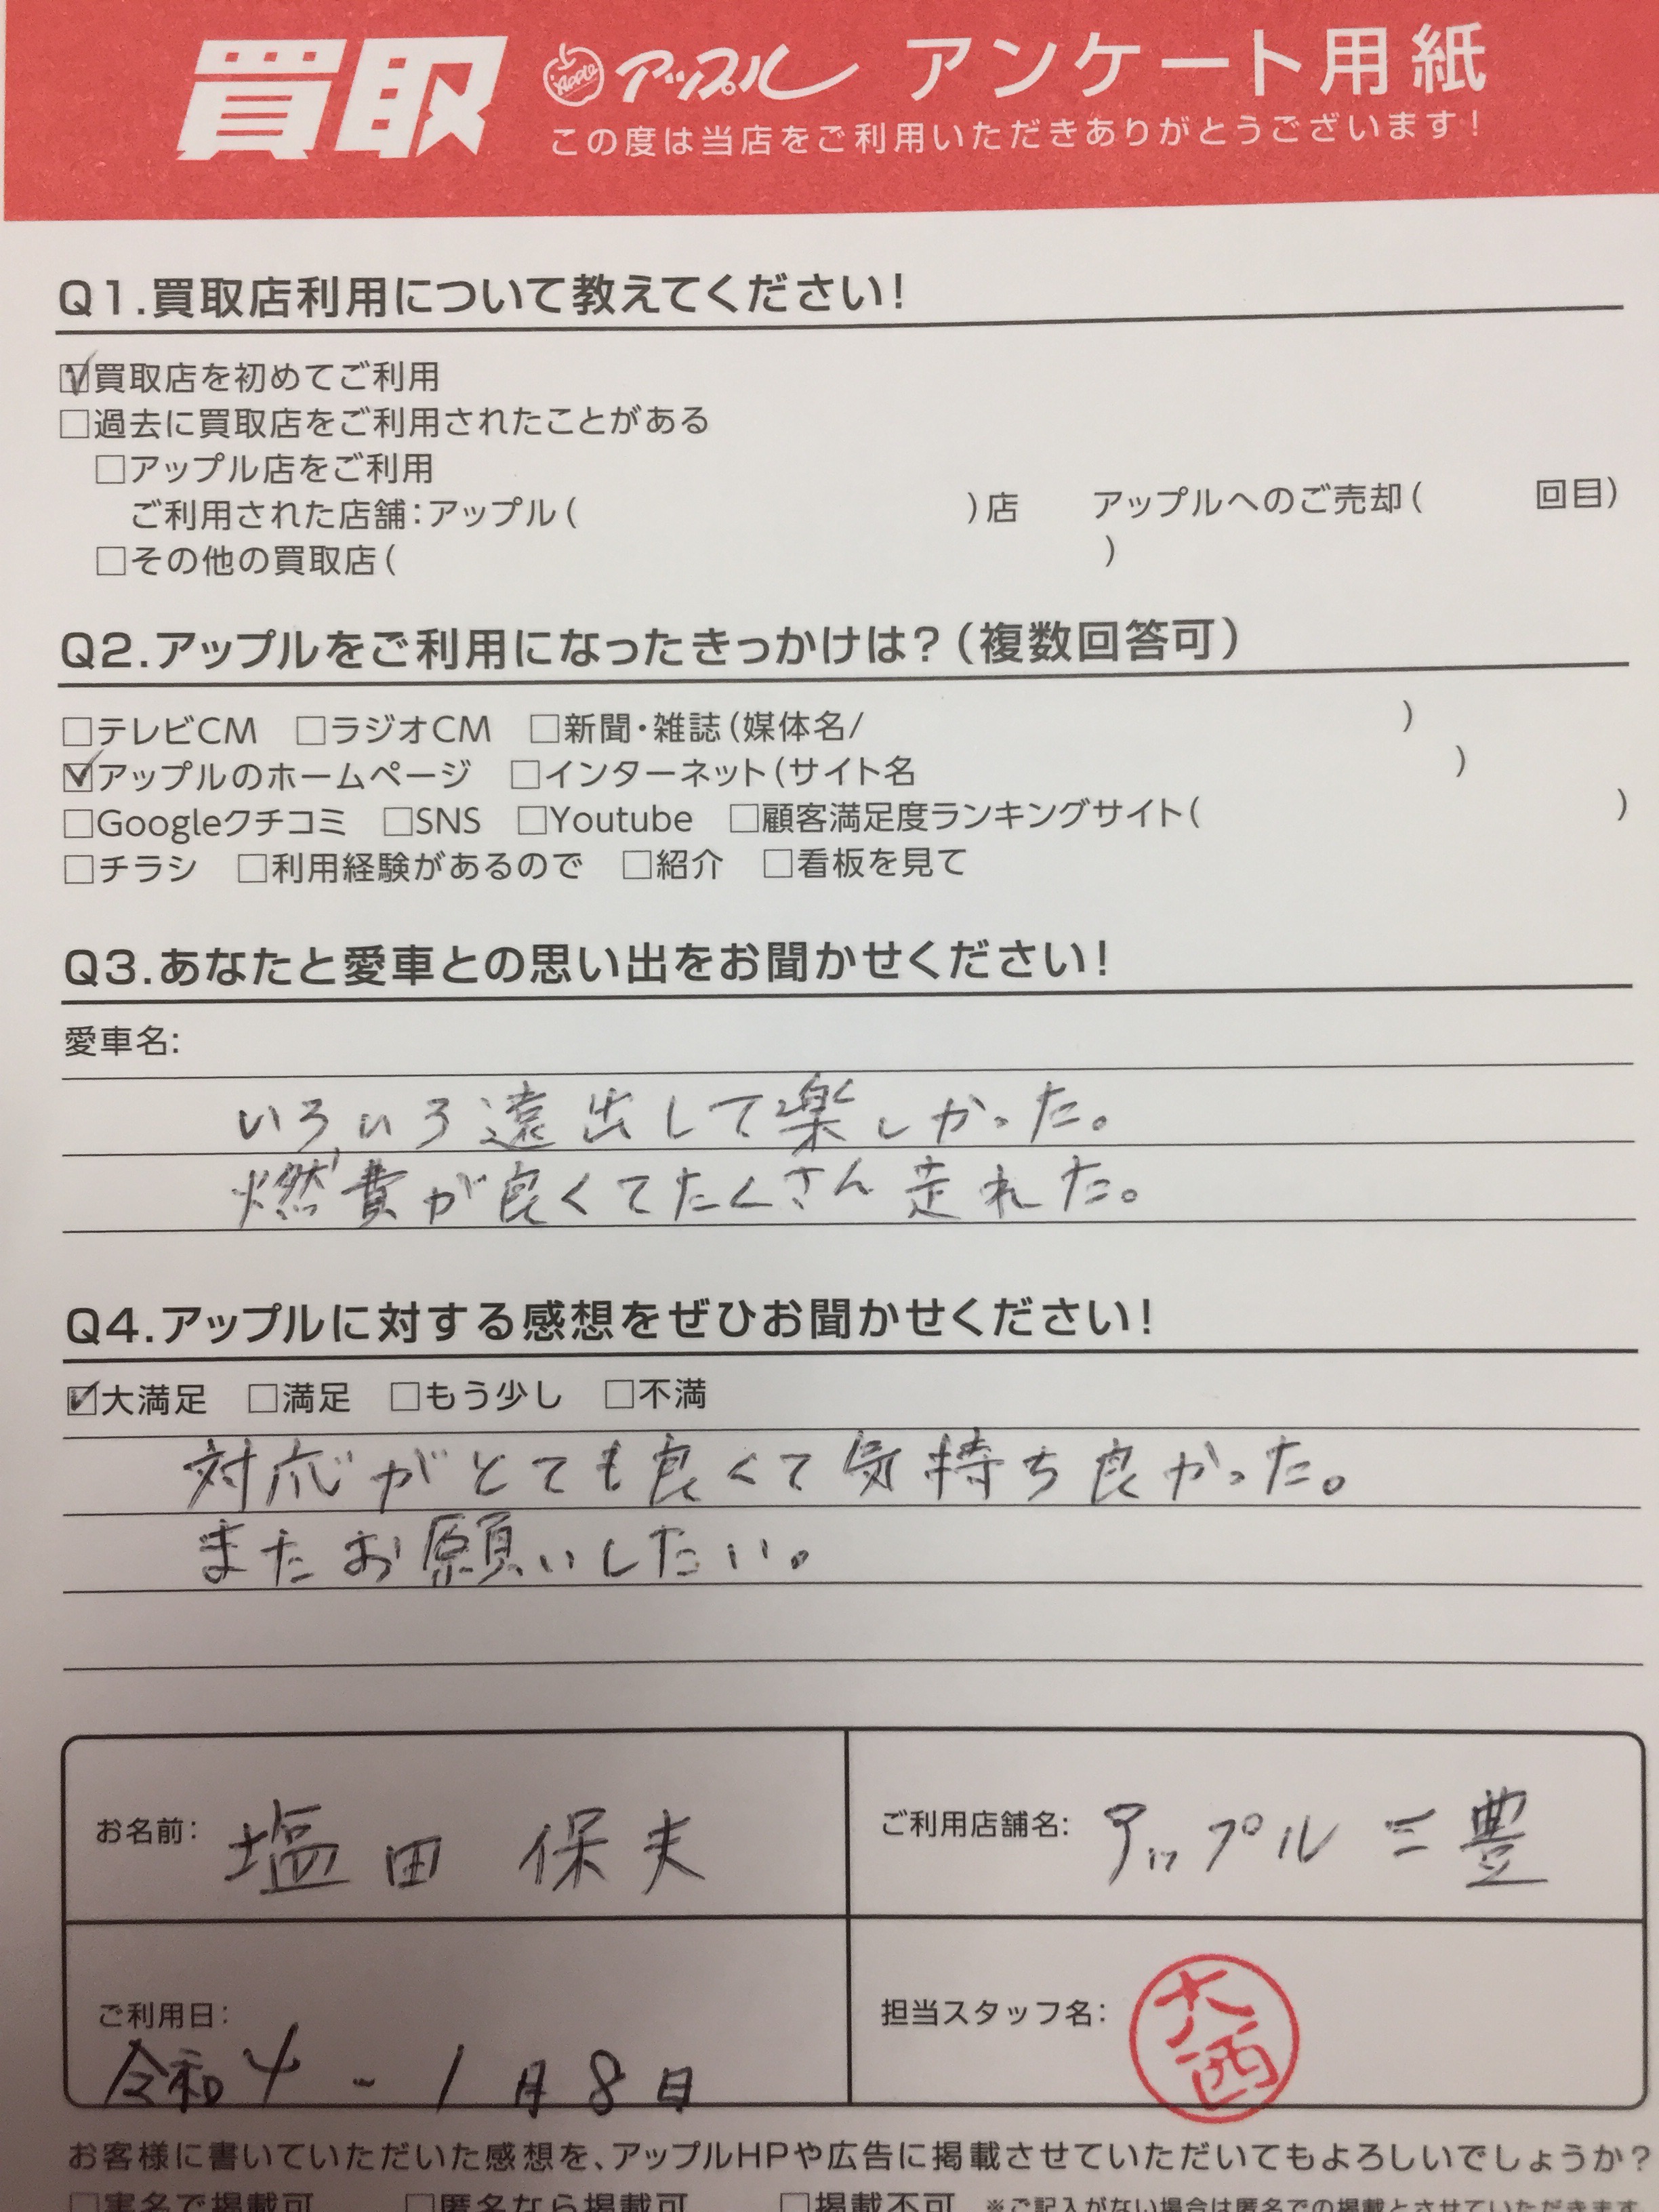 買取 Apple アップル アンケート用紙
この度は当店をご利用いただきありがとうございます!
Q1.買取店利用について教えてください!
☑買取店を初めてご利用
□過去に買取店をご利用されたことがある
□アップル店をご利用
ご利用された店舗:アップル( )店 アップルへのご売却( 回目)
□その他の買取店( )
Q2.アップルをご利用になったきっかけは?(複数回答可)
□テレビCM □ラジオCM □新聞・雑誌(媒体名/ )
☑アップルのホームページ □インターネット(サイト名 )
□Googleクチコミ □SNS □Youtube □顧客満足度ランキングサイト( )
□チラシ □利用経験があるので □紹介 □看板を見て
Q3.あなたと愛車との思い出をお聞かせください!
愛車名:
いろいろ遠出して楽しかった。
燃費が良くてたくさん走れた。
Q4.アップルに対する感想をぜひお聞かせください!
☑大満足 □満足 □もう少し □不満
対応がとても良くて気持ち良かった。
またお願いしたい。
お名前: 塩田 保夫
ご利用店舗名: アップル三豊
ご利用日: 令和4-1月8日
担当スタッフ名: 大西
お客様に書いていただいた感想を、アップルHPや広告に掲載させていただいてもよろしいでしょうか?
□実名で掲載可 □匿名なら掲載可 □掲載不可 ※ご記入がない場合は匿名での掲載とさせていただきます。